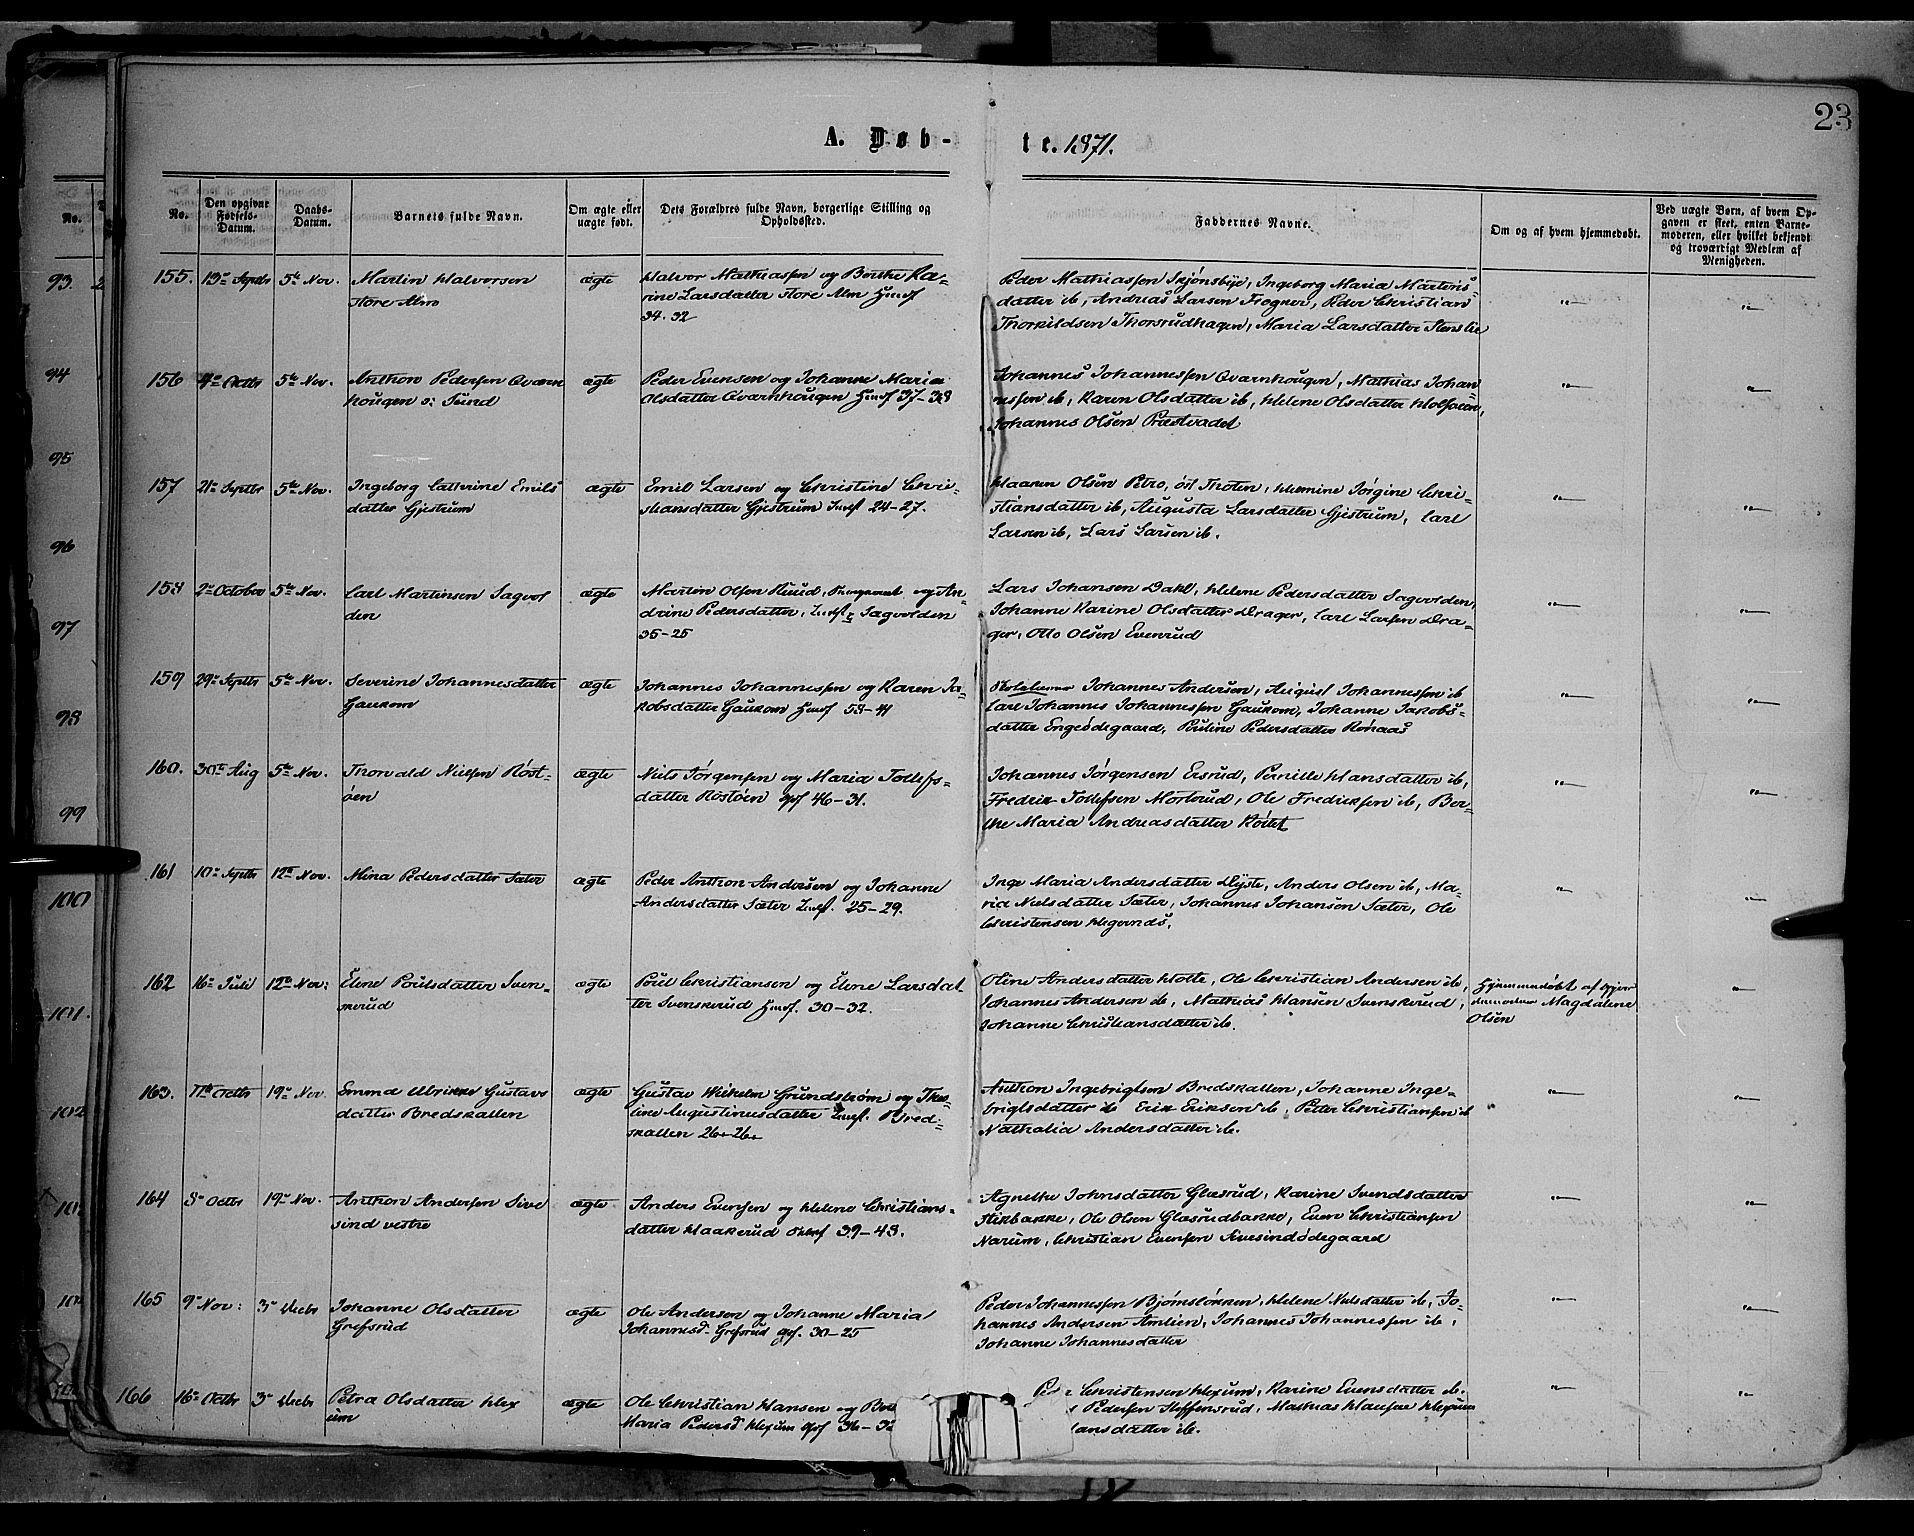 23
A. Døb-
te. 1871.
No.
Den opgivne Fødsels-Datum.
Daabs-Datum.
Barnets fulde Navn.
Om ægte eller uægte født.
Dets Forældres fulde Navn, borgerlige Stilling og Opholdssted.
Faddernes Navne.
Om og af hvem hjemmedøbt.
Ved uægte Børn, af hvem Opgaven er skeet, enten Barnemoderen, eller hvilket bekjendt og troværdigt Medlem af Menigheden.
155. 13de Septbr 5te Nov. Martin Halvorsen
Store Alm
ægte
Halvor Mathiassen og Berthe Ka-
rine Larsdatter Store Alm Husf
34. 32
Peder Mathiassen Skjønsbye, Ingeborg Maria Martins-
datter ib, Andreas Larsen Frogner, Peder Christians
Thorkildsen Thorsrudhagen, Maria Larsdatter Stenslie
156 4de Octbr 5te Nov. Anthon Pedersen Qværn
hougen o: Sund
ægte
Peder Evensen og Johanne Marie
Olsdatter Qvarnhougen Husf 37-38
Johannes Johannessen Qvarnhougen, Mathias Johan-
nessen ib, Karen Olsdatter ib, Helene Olsdatter
Johannes Olsen Præstvadet
157 21de Septbr 5te Nov. Ingeborg Cathrine Emils
datter Gjestrum
ægte
Emil Larsen og Christine Chri-
stiansdatter Gjestrum Indf 24-27.
Haaken Olsen Petro, øst Thoten, Hermine Jørgine Chri-
stiansdatter ib, Augusta Larsdatter Gjestrum, Carl
Larsen ib, Lars Larsen ib.
158 2den October 5te Nov. Carl Martinsen Sagvol
den
ægte
Martin Olsen Ruud, og An-
drine Pedersdatter, Indf Sagvolden
35-25
Lars Johansen Dahl, Helene Pedersdatter Sagvolden,
Johanne Karine Olsdatter Drager, Carl Larsen Dra-
ger, Otto Olsen Evenrud
159 29de Septbr 5te Nov. Severine Johannesdatter
Gaukom
ægte
Johannes Johannessen og Karen Ja-
kobsdatter Gaukom Husf 53-41
Skolelærer Johannes Andersen, August Johannessen ib
Carl Johannes Johannessen Gaukom, Johanne Jakobs-
datter Engeødegaard, Pauline Pedersdatter Rønaas
160. 30te Aug 5te Nov. Thorvald Nielsen Røst-
øen
ægte
Niels Jørgensen og Maria Tollefs-
datter Røstøen gpf 46-31.
Johannes Jørgensen Ersrud, Pernille Hansdatter ib,
Fredrik Tollefsen Morterud, Ole Fredriksen ib, Ber-
the Maria Andreasdatter Røstet
161 10de Septbr 12te Nov. Mina Pedersdatter Sæter
ægte
Peder Anthon Andersen og Johanne
Andersdatter Sæter Indf. 25-29.
Inge Maria Andersdatter Dyste, Anders Olsen ib, Ma-
ria Nielsdatter Sæter, Johannes Johansen Sæter, Ole
Christensen Hegernæs.
162 16de Juli 12te Nov: Elene Poulsdatter Sven-
skerud
ægte
Poul Christiansen og Elene Larsdat
ter Svenskerud Husf. 30-32.
Oline Andersdatter Holte, Ole Christian Andersen ib,
Johannes Andersen ib, Mathias Hansen Svenskerud,
Johanne Christiansdatter ib.
Hjemmedøbt af Gjor
demoder Magdalene
Olsen
163. 11te Octbr 19de Nov. Emma Ulrikke Gustavs
datter Bredskallen
ægte
Gustav Wilhelm Grundstrøm og Tho-
line Augustinusdatter Indf. Bred-
skallen 26-26
Anthon Ingebrigtsen Bredskallen, Johanne Inge-
brigtsdatter ib Erik Eriksen ib, Petter Christiansen ib
Nathalia Andersdatter ib.
164 8de Octbr 19de Nov. Anthon Andersen Sive
sind vestre
ægte
Anders Evensen og Helene Christians-
datter Haakerud 39-43.
Agnethe Johnsdatter Glæsrud, Karine Svendsdatter
Stikbakke, Ole Olsen Glæsrudbakke, Even Christiansen
Narum, Christian Evensen Sivesindødegaard
165 9de Nov: 3de Decbr Johanne Olsdatter
Grefsrud
ægte
Ole Andersen og Johanne Maria
Johannesd. Grefsrud gpf. 30-25
Peder Johannessen Bjørnsløkken, Helene Nielsdatter ib, Jo-
hannes Andersen Amlien, Johannes Johannessen ib,
Johanne Johannesdatter
166 16de Octbr 3de Decbr Petra Olsdatter Hex
um
ægte
Ole Christian Hansen og
Maria Pedersd Hexum gpf 36-
Christensen Hexum, Karine Evensdatter ib.
Pedersen Steffensrud, Mathias Hansen Hexum
ansdatter ib.
93.
94
95
96
97
98
99
100
101.
102